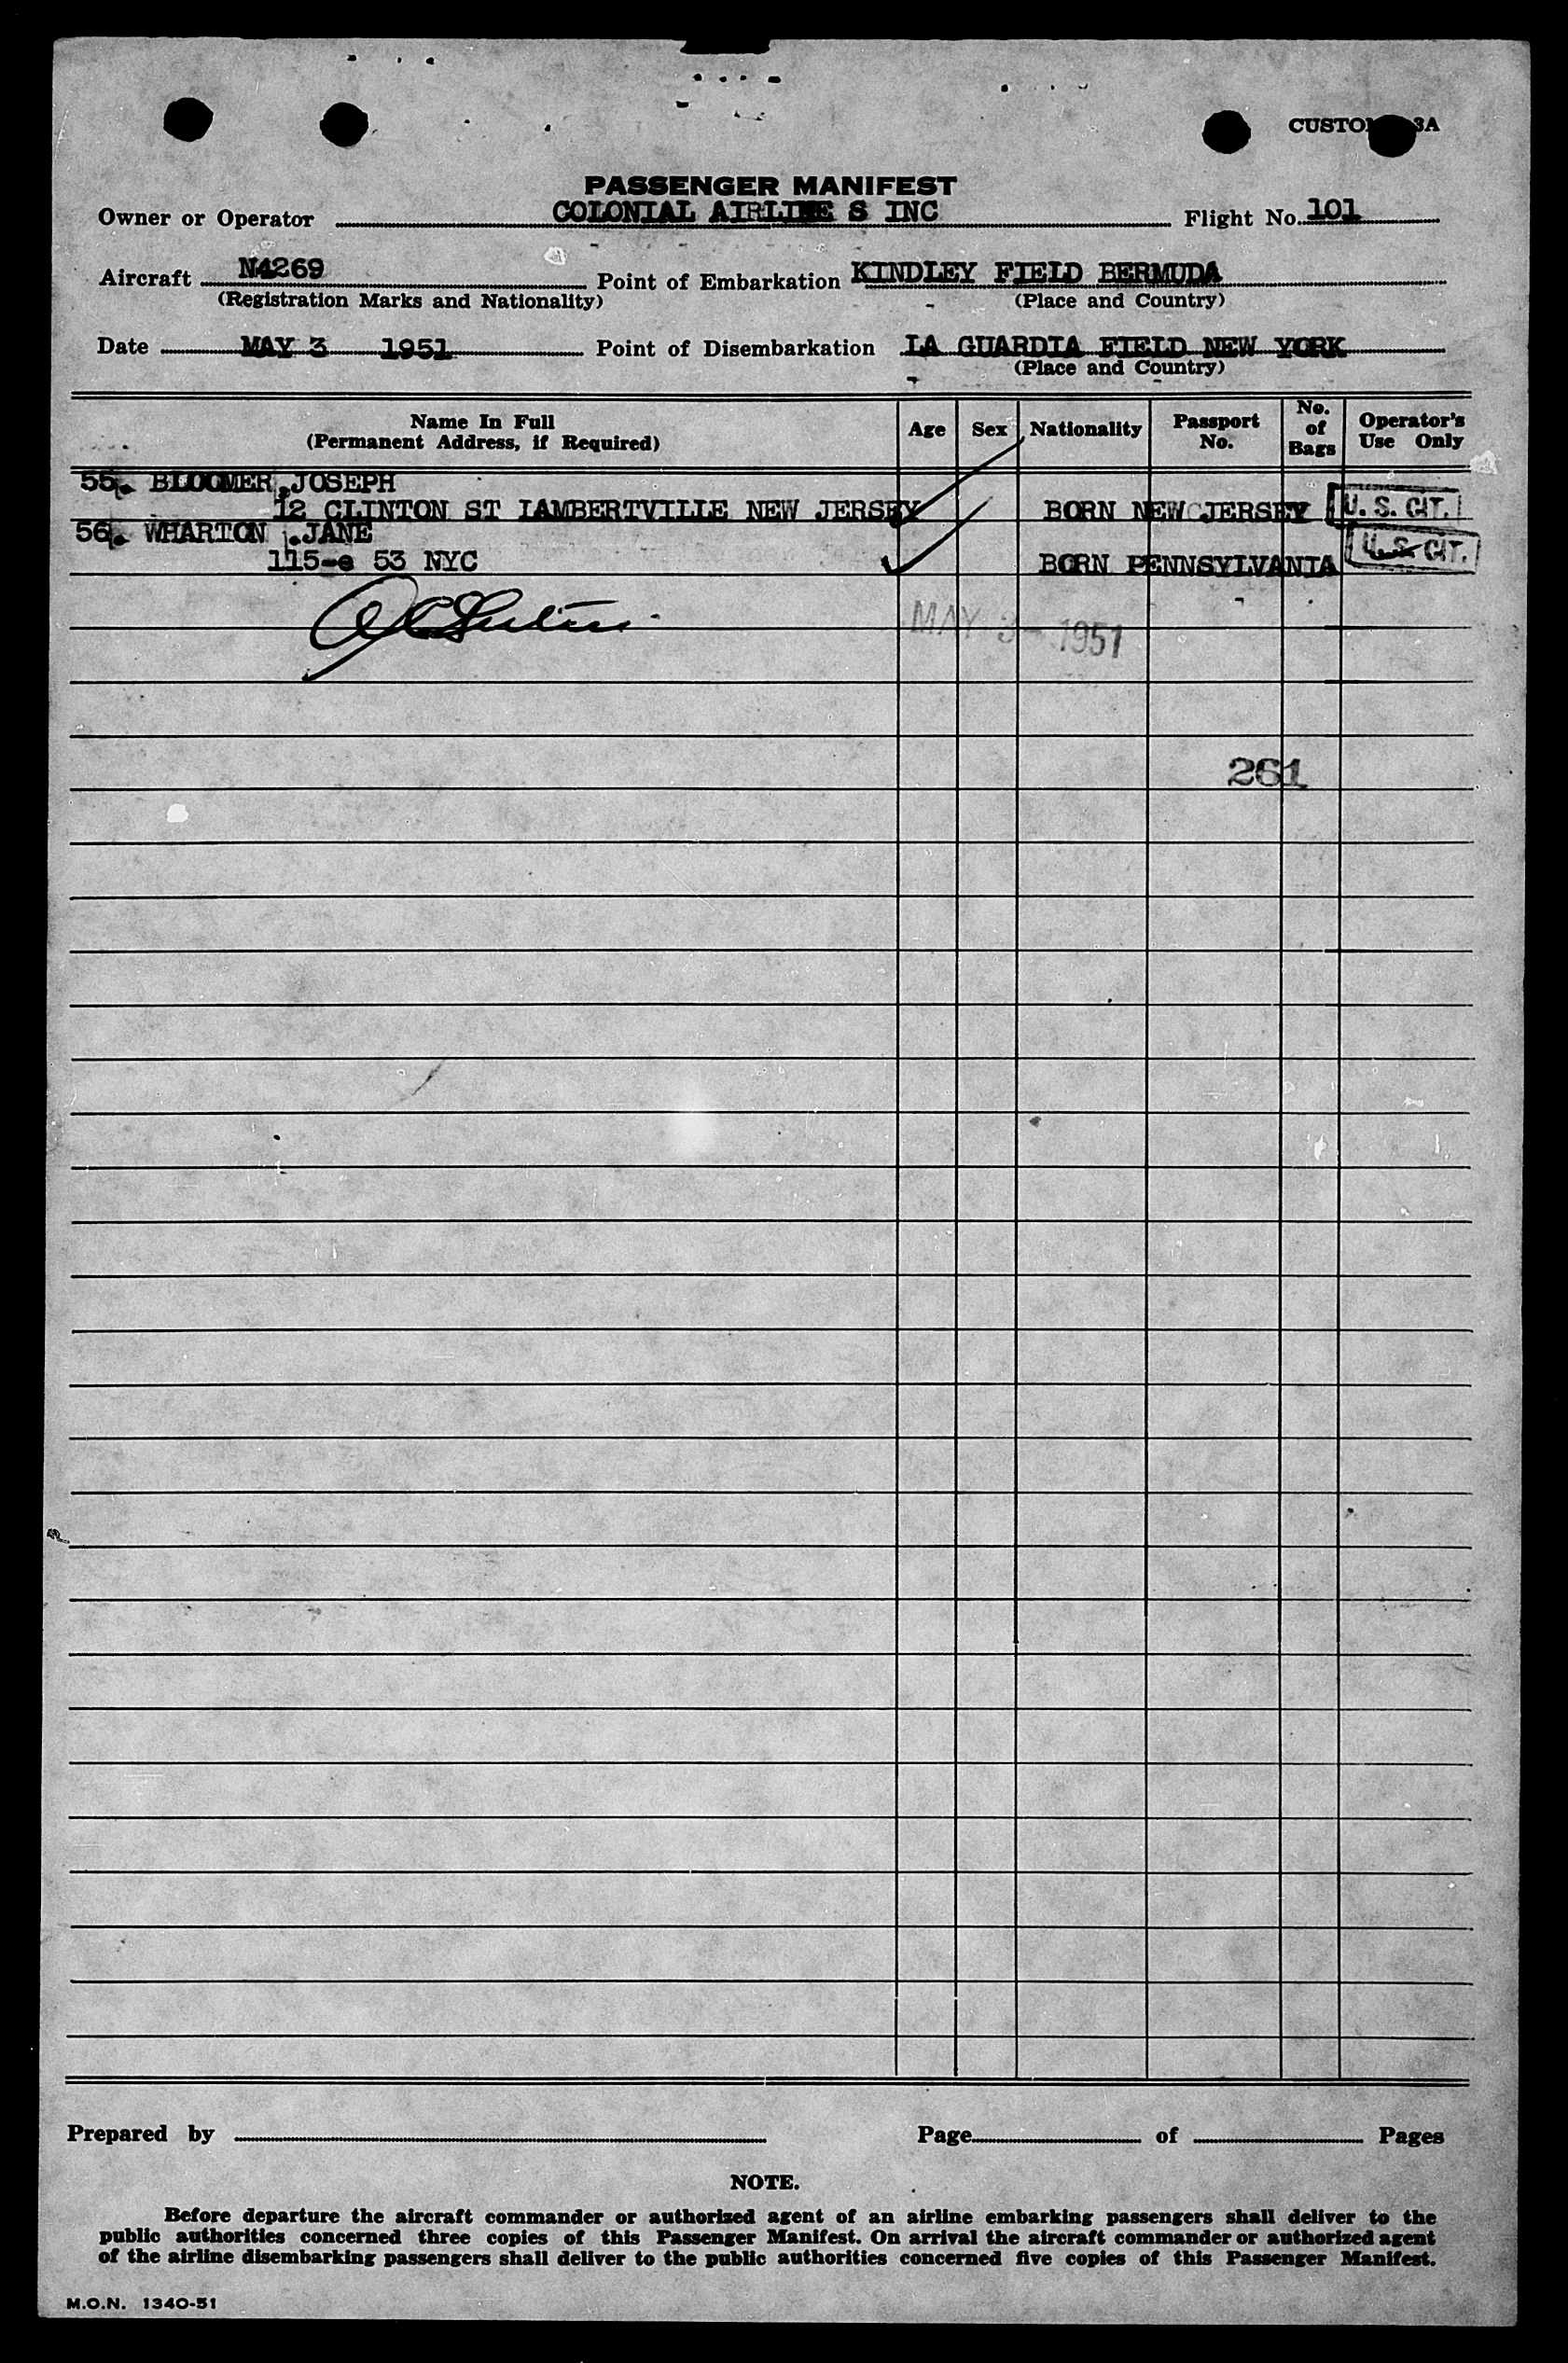 CUSTO 3A
PASSENGER MANIFEST
Owner or Operator COLONIAL AIRLINE S INC Flight No. 101
Aircraft N4269 Point of Embarkation KINDLEY FIELD BERMUDA
(Registration Marks and Nationality) (Place and Country)
Date MAY 3 1951 Point of Disembarkation LA GUARDIA FIELD NEW YORK
(Place and Country)
Name In Full (Permanent Address, if Required) Age Sex Nationality Passport No. No. of Bags Operator's Use Only
55. BLOOMER,JOSEPH
12 CLINTON ST LAMBERTVILLE NEW JERSEY BORN NEW JERSEY U. S. CIT.
56. WHARTON .JANE
115-e 53 NYC BORN PENNSYLVANIA U.S. CIT.
MAY 3- 1951
261
Prepared by Page of Pages
NOTE.
Before departure the aircraft commander or authorized agent of an airline embarking passengers shall deliver to the
public authorities concerned three copies of this Passenger Manifest. On arrival the aircraft commander or authorized agent
of the airline disembarking passengers shall deliver to the public authorities concerned five copies of this Passenger Manifest.
M.O.N. 1340-51